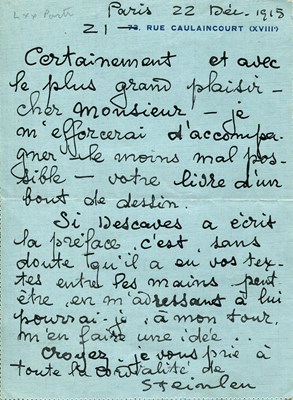 Paris 22 Déc. 1918
21 73, RUE CAULAINCOURT (XVIIIe)
Certainement et avec
le plus grand plaisir -
cher Monsieur - je
m'efforcerai d'accompa-
gner le moins mal pos-
sible - votre livre d'un
bout de dessin.
Si Descaves a écrit
la préface c'est sans
doute qu'il a eu vos tex-
tes entre les mains peut
être en m'adressant à lui
pourrai-je, à mon tour,
m'en faire une idée..
Croyez, je vous prie à
toute la cordialité de
Steinlen